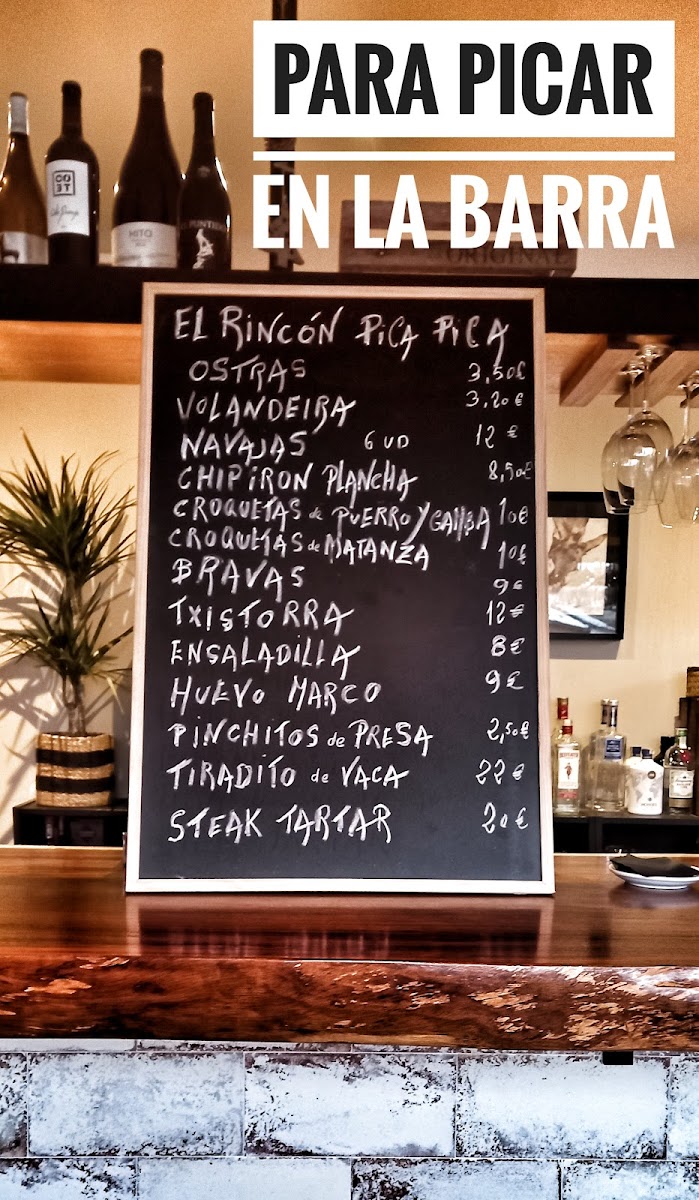 PARA PICAR
EN LA BARRA
HITO
ORIGINAL
EL RINCÓN PICA PICA
OSTRAS 3,50€
VOLANDEIRA 3,20€
NAVAJAS 6 UD 12€
CHIPIRON PLANCHA 8,50€
CROQUETAS de PUERRO Y GAMBA 10€
CROQUETAS de MATANZA 10€
BRAVAS 9€
TXISTORRA 12€
ENSALADILLA 8€
HUEVO MARCO 9€
PINCHITOS de PRESA 2,50€
TIRADITO de VACA 22€
STEAK TARTAR 20€